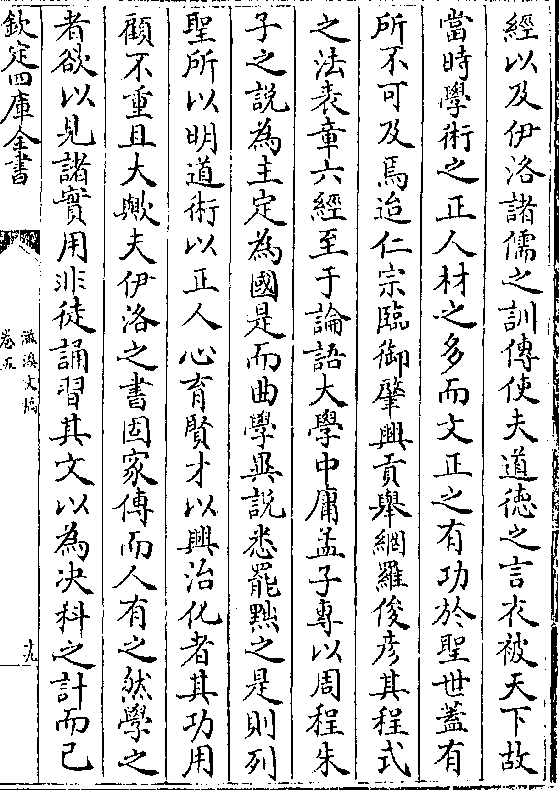 經以及伊洛諸儒之訓傳使夫道徳之言衣被天下故
當時學術之正人材之多而文正之有功於聖世蓋有
所不可及焉迨仁宗臨御肇興貢舉網羅俊彦其程式
之法表章六經至于論語大學中庸孟子專以周程朱
子之説為主定為國是而曲學異説悉罷黜之是則列
聖所以明道術以正人心育賢才以興治化者其功用
顧不重且大歟夫伊洛之書固家傳而人有之然學之
者欲以見諸實用非徒誦習其文以為决科之計而已
欽定四庫全書
滋溪文稿
卷五
十九